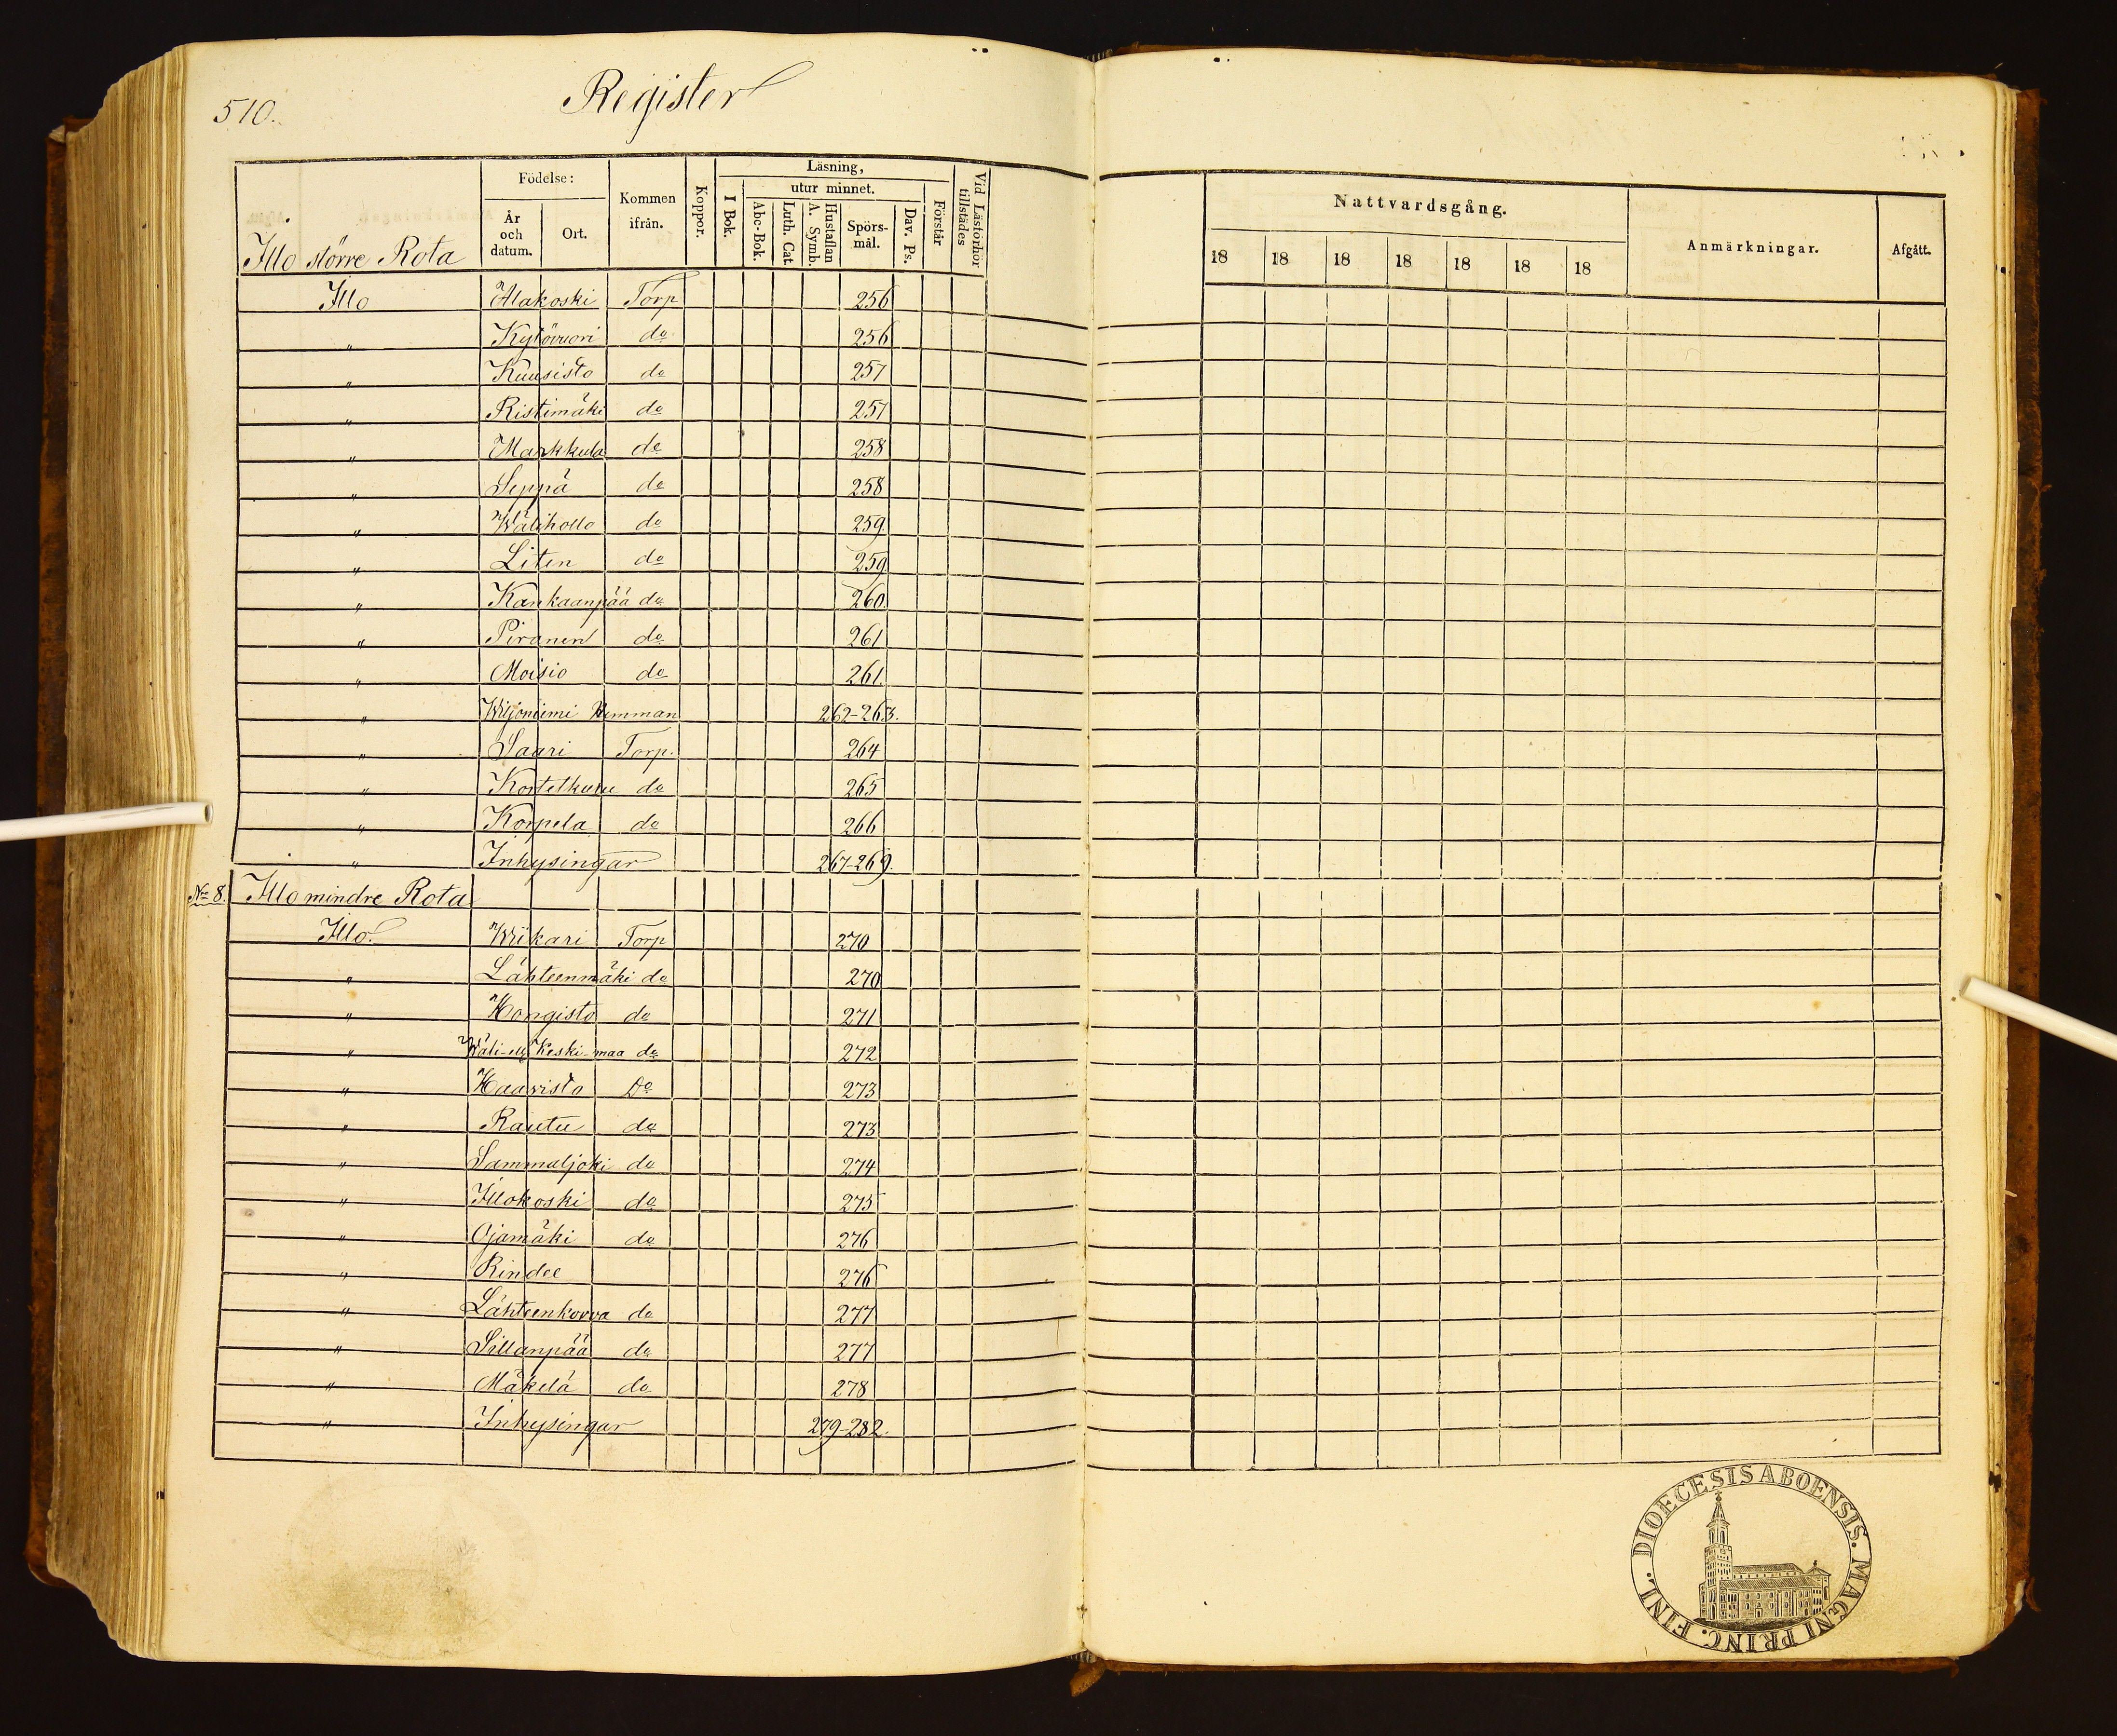 510.
Register
Illo större Rota
Födelse:
År och datum.
Ort.
Kommen ifrån.
Koppor.
Läsning,
I Bok.
utur minnet.
Abc-Bok.
Luth. Cat.
Hustaflan A. Symb.
Spörs-mål.
Dav. Ps.
Förstår
Vid Läsförhör tillstädes
Nattvardsgång.
18 18 18 18 18 18 18
Anmärkningar.
Afgått.
Illo Alakoski Torp 256
" Kytövuori do 256
" Kuusisto do 257
" Ristimäki do 257
" Markkula do 258
" Seppä do 258
" Wälihollo do 259.
" Liten do 259.
" Kankaanpää do 260.
" Piranen do 261
" Moisio do 261.
" Wiljoniemi Hemman 262-263.
" Saari Torp. 264
" do 265
" Korpela do 266
" Inhysingar 267-269.
No 8. Illo mindre Rota
Illo. Wikari Torp 270
" Lähteenmäki do 270
" Hongisto do 271
" Wäli- Keski-maa do 272
" Haaristo Do 273
" Rautu do 273
" Sammaljoki do 274
" Illokoski do 275
" Ojamäki do 276
" Rindee 276
" Lähteenkorva do 277
" Sillanpää do 277
" Mäkelä do 278
" Inhysingar 279-282.
DIOECESIS ABOENSIS. MAGNI PRINC. FINL.